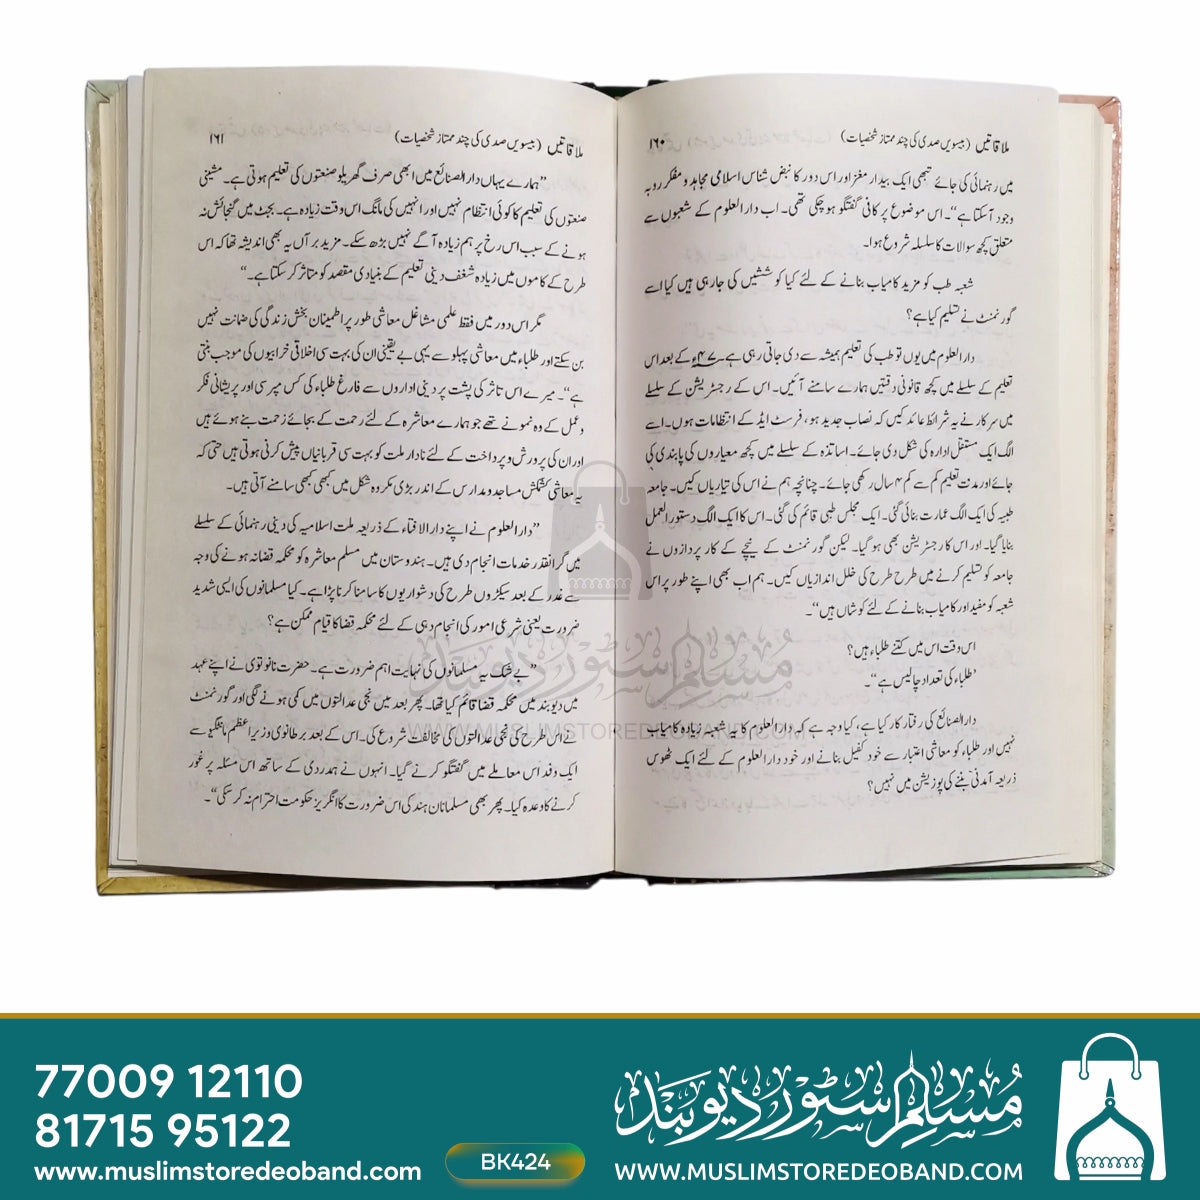 ملاقاتیں (بیسویں صدی کی چند ممتاز شخصیات) ۱۶۰
میں رہنمائی کی جائے تبھی ایک بیدار مغز اور اس دور کا نبض شناس اسلامی مجاہد و مفکر روبہ
وجود آسکتا ہے“۔ اس موضوع پر کافی گفتگو ہوچکی تھی۔ اب دارالعلوم کے شعبوں سے
متعلق کچھ سوالات کا سلسلہ شروع ہوا۔
شعبہ طب کو مزید کامیاب بنانے کے لئے کیا کوششیں کی جارہی ہیں کیا اسے
گورنمنٹ نے تسلیم کیا ہے؟
دارالعلوم میں یوں تو طب کی تعلیم ہمیشہ سے دی جاتی رہی ہے۔ ۴۷ء کے بعد اس
تعلیم کے سلسلے میں کچھ قانونی دقتیں ہمارے سامنے آئیں۔ اس کے رجسٹریشن کے سلسلے
میں سرکار نے یہ شرائط عائد کیں کہ نصاب جدید ہو، فرسٹ ایڈ کے انتظامات ہوں۔ اسے
الگ ایک مستقل ادارہ کی شکل دی جائے۔ اساتذہ کے سلسلے میں کچھ معیاروں کی پابندی کی
جائے اور مدت تعلیم کم سے کم ۴ سال رکھی جائے۔ چنانچہ ہم نے اس کی تیاریاں کیں۔ جامعہ
طبیہ کی ایک الگ عمارت بنائی گئی۔ ایک مجلس طبی قائم کی گئی۔ اس کا ایک الگ دستور العمل
بنایا گیا۔ اور اس کا رجسٹریشن بھی ہوگیا۔ لیکن گورنمنٹ کے نیچے کے کارپردازوں نے
جامعہ کو تسلیم کرنے میں طرح طرح کی خلل اندازیاں کیں۔ ہم اب بھی اپنے طور پر اس
شعبہ کو مفید اور کامیاب بنانے کے لئے کوشاں ہیں“۔
اس وقت اس میں کتنے طلباء ہیں؟
”طلباء کی تعداد چالیس ہے“۔
دارالصنائع کی رفتار کار کیا ہے، کیا وجہ ہے کہ دارالعلوم کا یہ شعبہ زیادہ کامیاب
نہیں اور طلباء کو معاشی اعتبار سے خود کفیل بنانے اور خود دارالعلوم کے لئے ایک ٹھوس
ذریعہ آمدنی بننے کی پوزیشن میں نہیں؟
ملاقاتیں (بیسویں صدی کی چند ممتاز شخصیات) ۱۶۱
”ہمارے یہاں دارالصنائع میں ابھی صرف گھریلو صنعتوں کی تعلیم ہوتی ہے۔ مشینی
صنعتوں کی تعلیم کا کوئی انتظام نہیں اور انہیں کی مانگ اس وقت زیادہ ہے۔ بجٹ میں گنجائش نہ
ہونے کے سبب اس رخ پر ہم زیادہ آگے نہیں بڑھ سکے۔ مزید برآں یہ بھی اندیشہ تھا کہ اس
طرح کے کاموں میں زیادہ شغف دینی تعلیم کے بنیادی مقصد کو متاثر کر سکتا ہے۔“
مگر اس دور میں فقط علمی مشاغل معاشی طور پر اطمینان بخش زندگی کی ضمانت نہیں
بن سکتے اور طلباء میں معاشی پہلو سے یہی بے یقینی ان کی بہت سی اخلاقی خرابیوں کی موجب بنتی
ہے“۔ میرے اس تاثر کی پشت پر دینی اداروں سے فارغ طلباء کی کس مپرسی اور پریشانی فکر
وعمل کے وہ نمونے تھے جو ہمارے معاشرہ کے لئے رحمت کے بجائے زحمت بنے ہوئے ہیں
اور ان کی پرورش و پرداخت کے لئے نادار ملت کو بہت سی قربانیاں پیش کرنی ہوتی ہیں حتی کہ
یہ معاشی کشمکش مساجد و مدارس کے اندر بڑی مکروہ شکل میں کبھی کبھی سامنے آتی ہیں۔
”دارالعلوم نے اپنے دارالافتاء کے ذریعہ ملت اسلامیہ کی دینی رہنمائی کے سلسلے
میں گرانقدر خدمات انجام دی ہیں۔ ہندوستان میں مسلم معاشرہ کو محکمہ قضا نہ ہونے کی وجہ
سے غدر کے بعد سیکڑوں طرح کی دشواریوں کا سامنا کرنا پڑا ہے۔ کیا مسلمانوں کی ایسی شدید
ضرورت یعنی شرعی امور کی انجام دہی کے لئے محکمہ قضا کا قیام ممکن ہے؟
”بے شک یہ مسلمانوں کی نہایت اہم ضرورت ہے۔ حضرت نانوتوی نے اپنے عہد
میں دیوبند میں محکمہ قضا قائم کیا تھا۔ پھر بعد میں نجی عدالتوں میں کمی ہونے لگی اور گورنمنٹ
نے اس طرح کی نجی عدالتوں کی مخالفت شروع کی۔ اس کے بعد برطانوی وزیر اعظم مانٹیگو سے
ایک وفد اس معاملے میں گفتگو کرنے گیا۔ انہوں نے ہمدردی کے ساتھ اس مسئلہ پر غور
کرنے کا وعدہ کیا۔ پھر بھی مسلمانان ہند کی اس ضرورت کا انگریز حکومت احترام نہ کر سکی“۔
مسلم سٹور دیوبند
WWW.MUSLIMSTOREDEOBAND.COM
77009 12110
81715 95122
www.muslimstoredeoband.com
BK424
مسلم سٹور دیوبند
WWW.MUSLIMSTOREDEOBAND.COM